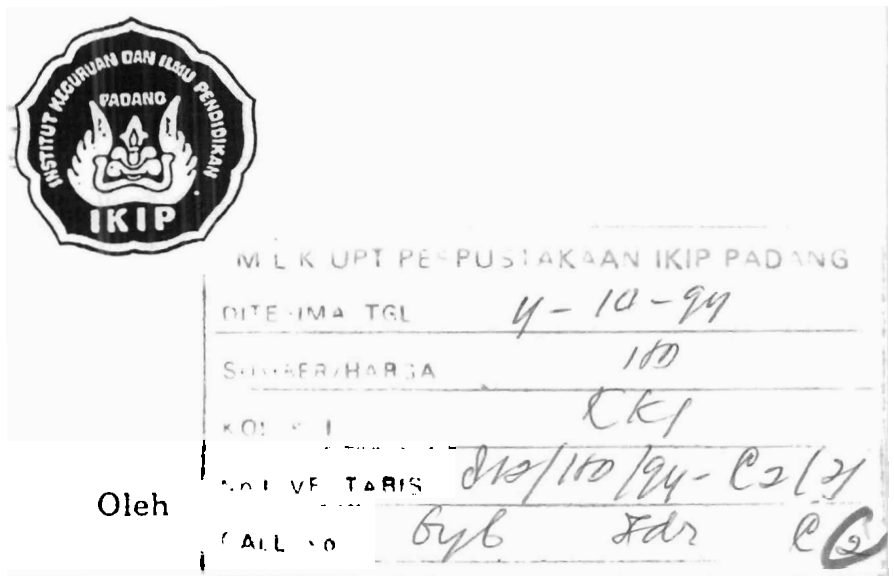 INSTITUT KEGURUAN DAN ILMU PENDIDIKAN
PADANG
IKIP
MILIK UPT PERPUSTAKAAN IKIP PADANG
DITERIMA TGL 4-10-94
SUMBER/HARGA
KOLEKSI KKI
NO INVENTARIS 812/HD/94-C2(2)
Oleh
CALL NO C 2